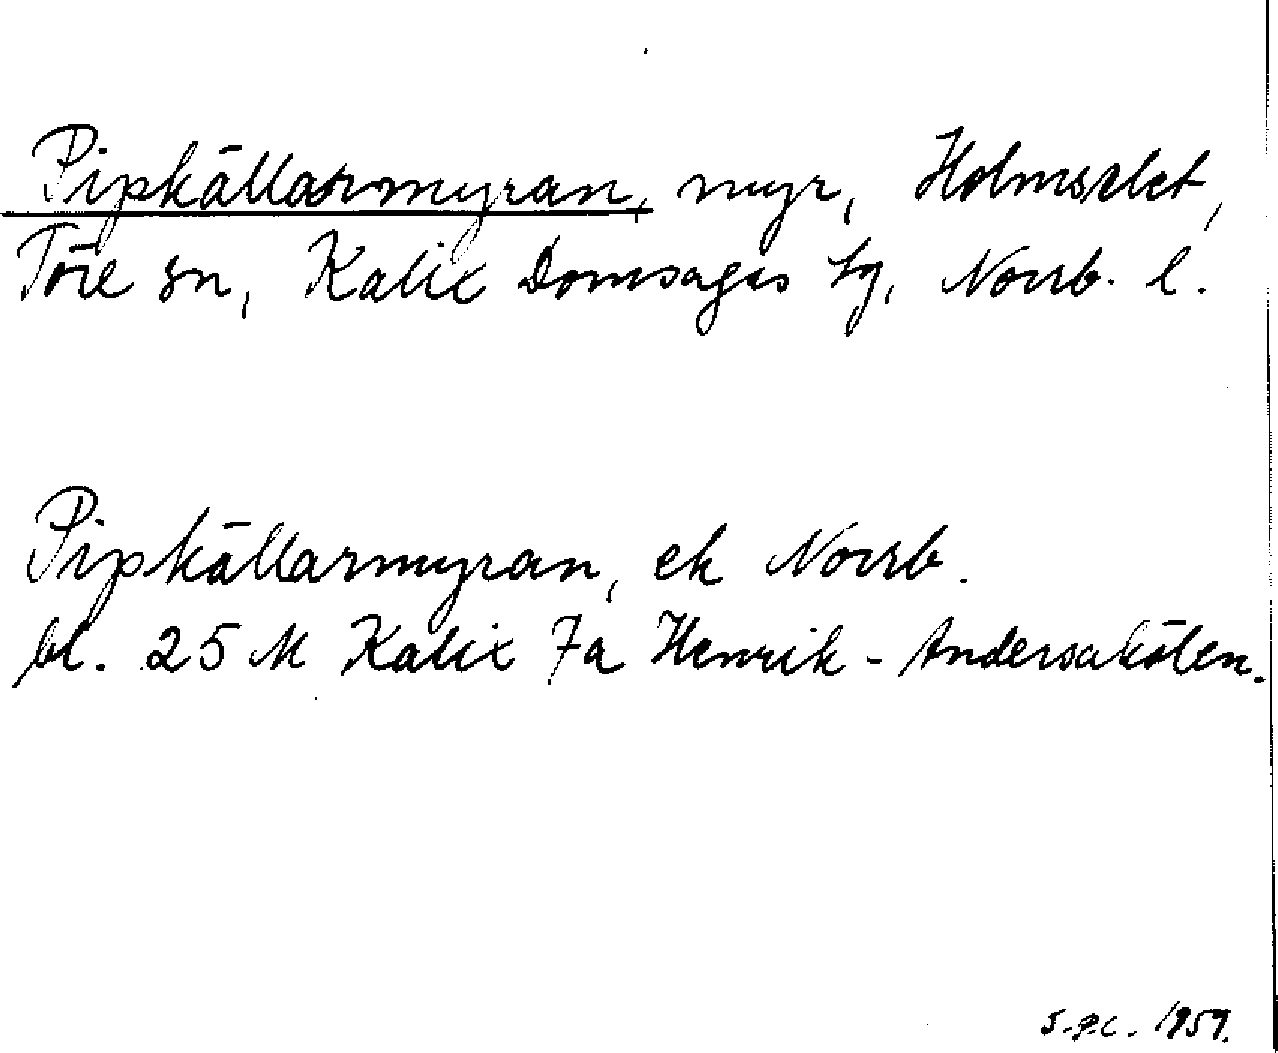 Pipkällarmyran, myr, Holmselet,
Töre sn, Kalix Domsagas tg, Norrb. l.
Pipkällarmyran, ek Norrb.
bl. 25 M Kalix 7a Henrik-Andersakölen.
1959.